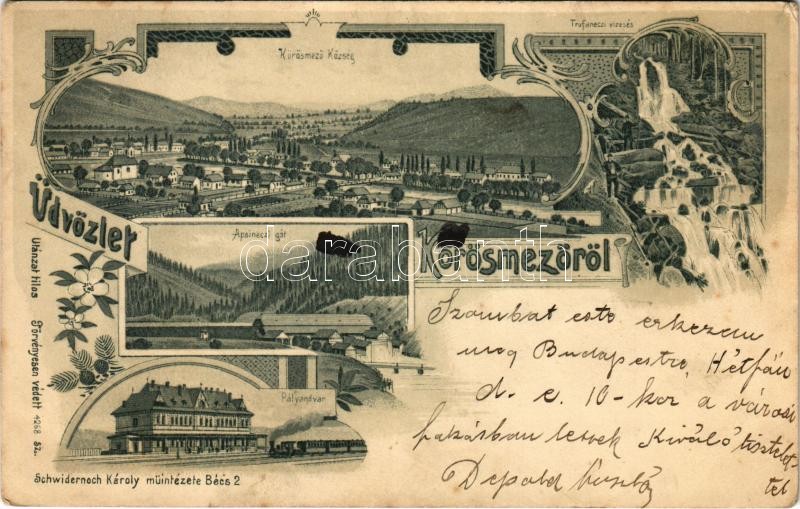 Trufaneczi vizesés
Kőrösmező Község
Üdvözlet
Kőrösmezőről
Apsineczi gát
Pályaudvar
Utánzat tilos Törvényesen védett 4268 sz.
Schwidernoch Károly műintézete Bécs 2
darabanth
Szombat este érkezem
meg Budapestre, Hétfőn
d. e. 10-kor a városi
lakásban leszek Kiváló tisztelet
tel